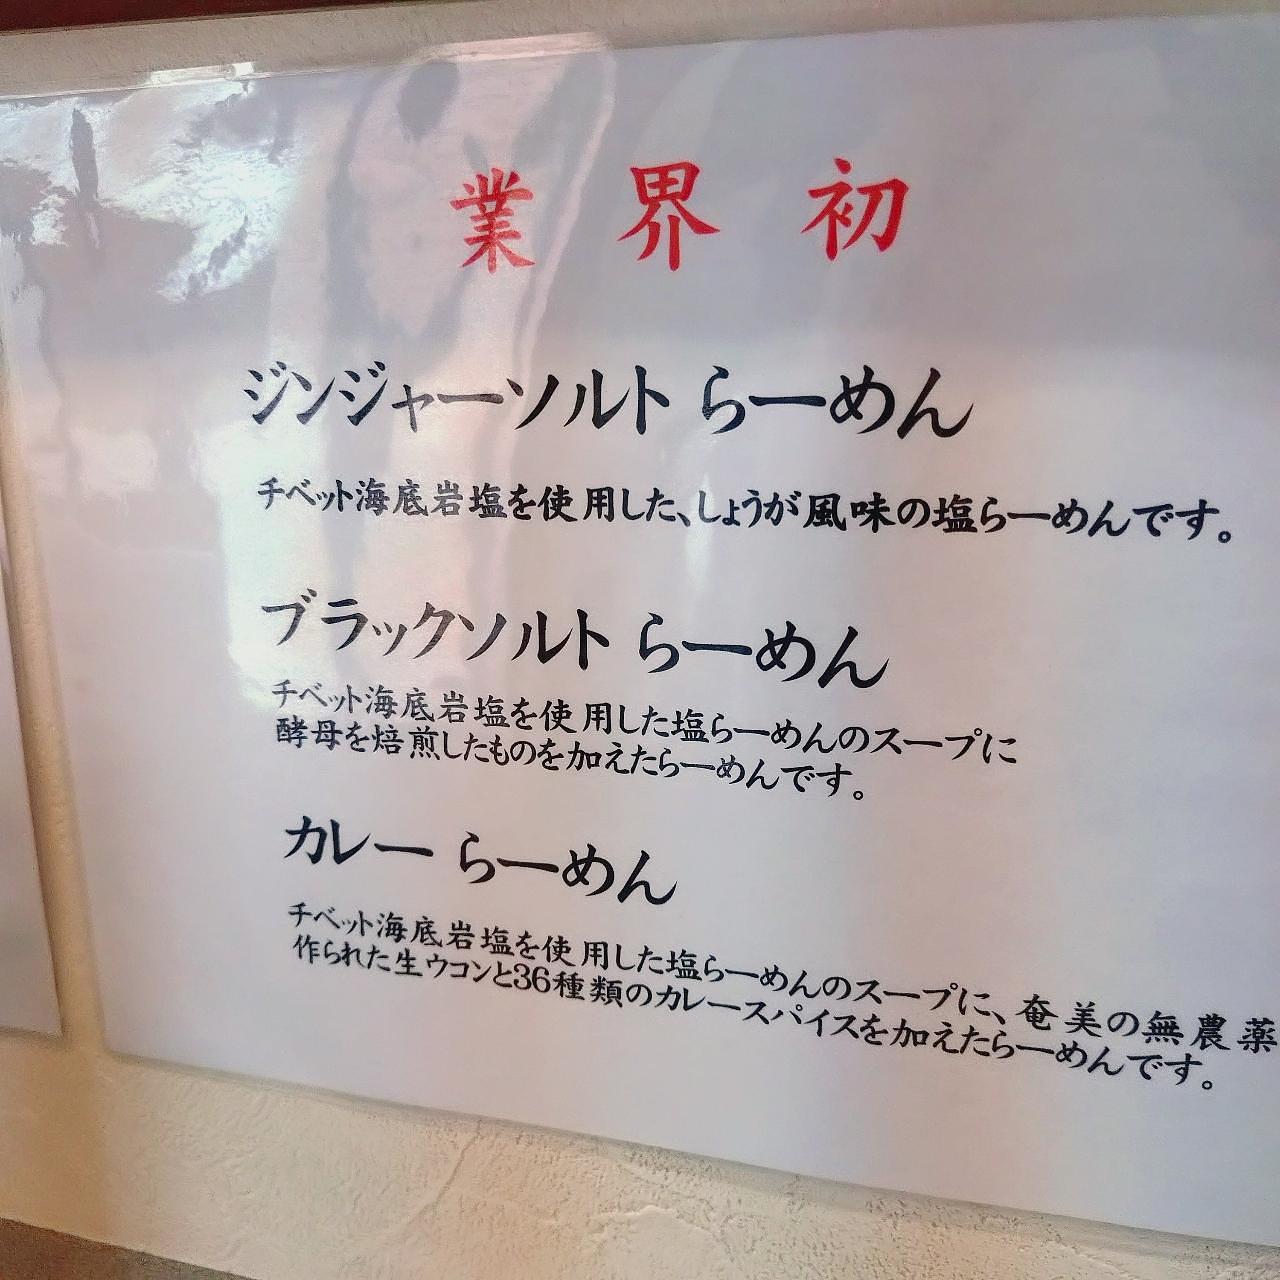 業界初
ジンジャーソルト らーめん
チベット海底岩塩を使用した、しょうが風味の塩らーめんです。
ブラックソルト らーめん
チベット海底岩塩を使用した塩らーめんのスープに
酵母を焙煎したものを加えたらーめんです。
カレー らーめん
チベット海底岩塩を使用した塩らーめんのスープに、奄美の無農薬
作られた生ウコンと36種類のカレースパイスを加えたらーめんです。